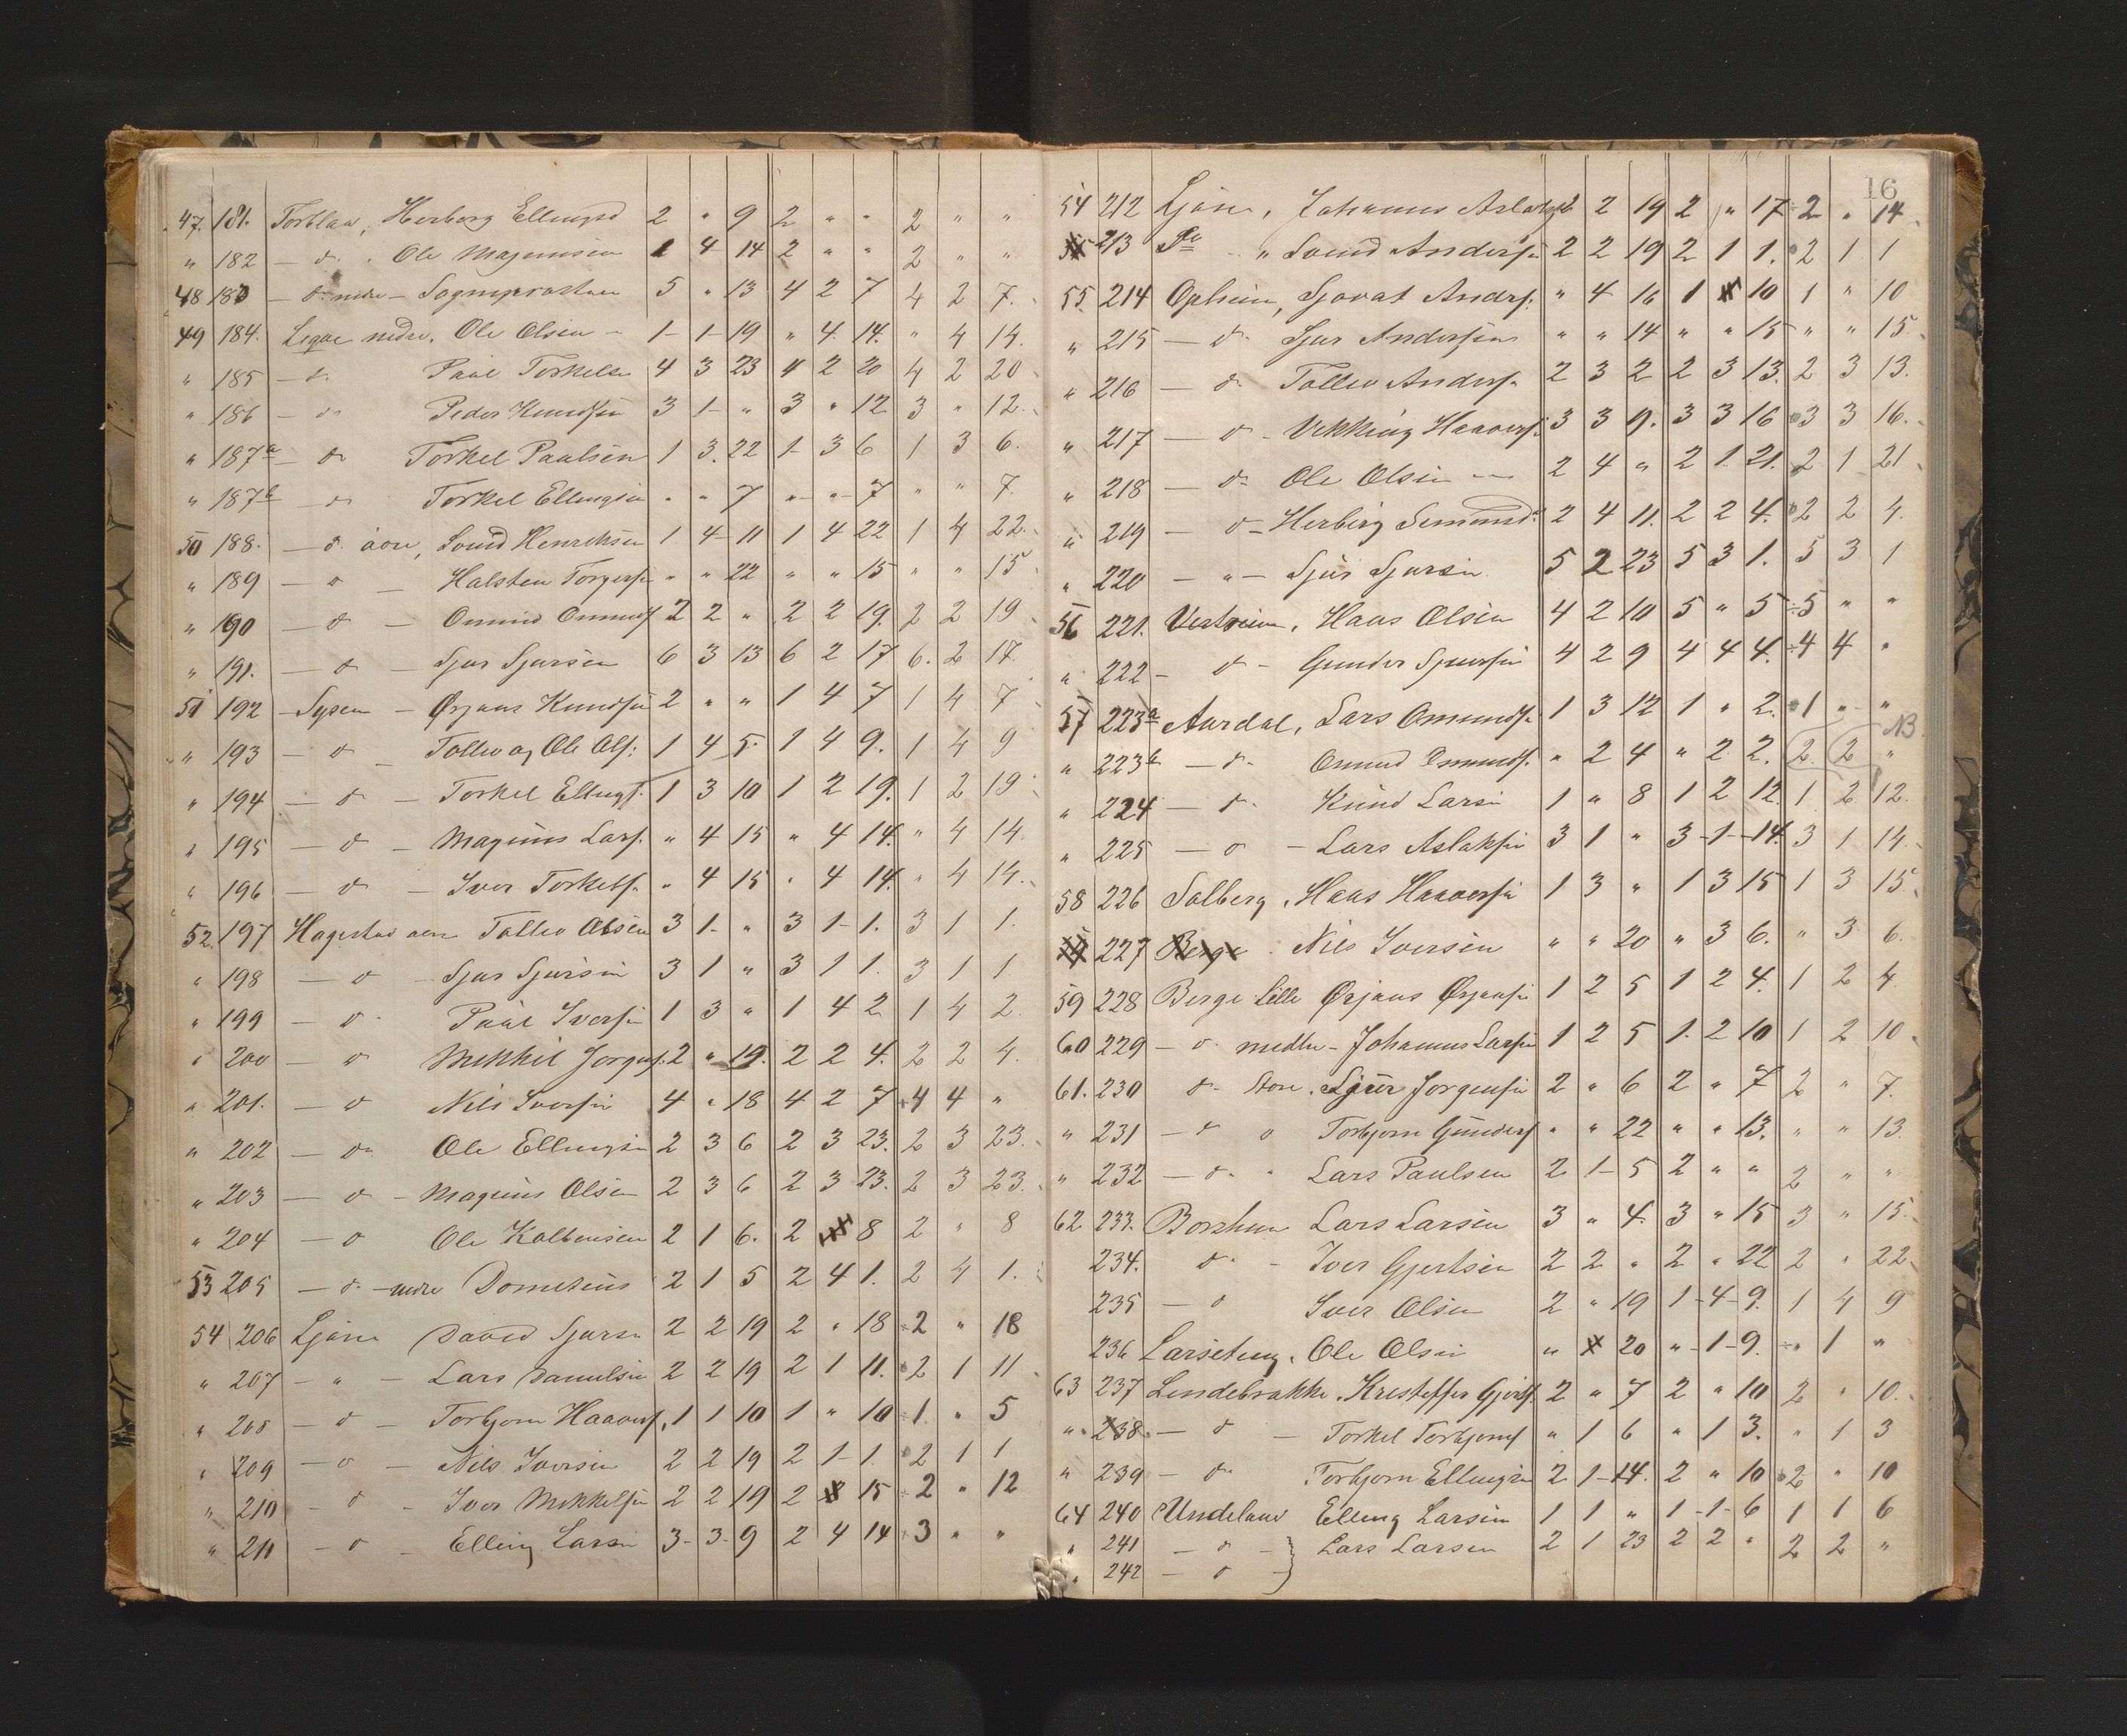 47. 181. Torblaa, Herborg Ellingsd 2 " 9 2 " " 2 " "
" 182 — d. Ole Magnusen 1 4 14 2 " " 2 " "
48 183 — d. nedre — Sognepræsten 5 " 13 4 2 7 4 2 7.
49 184. Legae nedre. Ole Olsen 1 1 19 " 4 14. " 4 14.
" 185 — d. Paal Torkelsen 4 3 23 4 2 20 4 2 20
" 186 — d. Peder Knudsen 3 1 " 3 " 12 3 " 12.
" 187a — d. Torkel Paulsen 1 3. 22 1 3 6 1 3 6.
" 187b — d. Torkel Ellingsen " " 7 " " 7 " " 7.
50 188. — d. øvre, Svend Henriksen 1 4 11 1 4 22 1 4 22.
" 189 — d — Halsten Torgersen " " 22 " " 15 " " 15
" 190 — d — Omund Omunds 2 2 " 2 2 19. 2 2 19
" 191. — d — Sjur Sjursen 6 3 13 6 2 17 6. 2 17.
51 192 Sysen — Ørjans Knudsen 2 " " 1 4 7 1 4 7
" 193 — d — Tollev og Ole Ols: 1 4 5. 1 4 9. 1 4 9
" 194 — d — Torkel Ellings. 1 3 10 1 2 19. 1 2 19
" 195 — d — Magnus Lars. " 4 15 " 4 14. " 4 14.
" 196 — d — Iver Torkels. " 4 15 " 4 14. " 4 14.
52. 197 Hagestad øvre Tollev Olsen 3 1 " 3 1 1. 3 1 1.
" 198 — d — Sjur Sjursen 3 1 " 3 1 1. 3 1 1
" 199 — d. Paal Iversen 1 3 " 1 4 2 1 4 2.
" 200 — d Mikkel Jørgens. 2 " 19. 2 2 4. 2 2 4.
" 201. — d Nils Iversen 4 " 18 4 2 7 4 4 "
" 202 — d. Ole Ellingsen 2 3 6 2 3 23. 2 3 23.
" 203 — d — Magnus Olsen 2 3 6 2 3 23. 2 3 23.
" 204 — d Ole Kolbensen 2 1 6. 2 8 2 " 8
53 205 — d. nedre Dometeius 2 1 5 2 4 1. 2 4 1.
54 206 Ljøne David Sjursen 2 2 19 2 " 18 ÷2 " 18
" 207 — " — Lars Danielsen 2 2 19 2 1 11. 2 1 11
" 208 — d — Torbjørn Haavers. 1 1 10 1 " 10 ÷1. " 5
" 209 — d — Nils Iversen 2 2 19 2 1 1. 2 1 1
" 210 — d — Iver Mikkelsen 2 2 19 2 15 ÷2 " 12
" 211 — d — Elling Larsen 3 3 9 2 4 14 3 " "
16
54 212 Ljøne, Johannes Aslaks 2 2 19 2 " 17 ÷2 " 14
213 Do " Svend Andersen 2 2 19 2 1 1. 2 1 1
55 214 Opheim, Sjovat Anders. " 4 16 1 10 1 " 10
" 215 — d. Sjur Andersen " " 14 " " 15 " " 15.
" 216 — d. Tollev Anders. 2 3 2 2 3 13. 2 3 13.
" 217 — d — Vikking Haavers. 3 3 9. 3 3 16 3 3 16.
" 218 — d. Ole Olsen 2 4 " 2 1. 21. 2 1 21
" 219 — d — Herbørg Semunds 2 4 11. 2 2 4. 2 2 4.
" 220 — " — Sjur Sjursen 5 2 23 5 3 1. 5 3 1
56 221. Vestreim, Haas Olsen 4 2 10 5 " 5 ÷5 " "
" 222 — d — Gunder Sjursen 4 2 9 4 4 4. ÷4 4 "
57 223a Aardal, Lars Omunds. 1 3 12 1 " 2. 1 " "
" 223b — d. Omund Omunds. " 2 4 " 2 2. 2 2 " NB
" 224 — d. Knud Larsen 1 " 8 1 2 12. 1 2 12.
" 225 — d — Lars Aslaksen 3 1 " 3 1 14. 3 1 14.
58 226 Salberg, Haas Haaversen 1 3 " 1 3 15 1 3 15.
227 Berge Nils Iversen " " 20 " 3 6. " 3 6.
59 228 Berge lille Ørjans Ørjansen 1 2 5 1 2 4. 1 2 4
60 229 — d. medlre — Johannes Larsen 1 2 5 1. 2 10 1 2 10
61. 230 d. store. Sjur Jørgensen 2 " 6 2 " 7 2 " 7.
" 231 — d o Torbjørn Gunders " " 22 " " 13. " " 13.
" 232 — d. " Lars Paulsen 2 1 5 2 " " 2 " "
62 233. Borshem Lars Larsen 3 " 4. 3 " 15 3 " 15.
234. d. — Iver Gjertsen 2 2 " 2 " 22 2 " 22
235 — d Iver Olsen 2 " 19 1 4 9. 1 4 9
236 Larseteng. Ole Olsen " 20 " 1 9. ÷" 1 "
63 237 Lindebrække. Kristoffer Gjers. 2 " 7 2 " 10 2 " 10.
" 238. — d — Torkel Torbjørns " 1 6 " 1 3. " 1 3
" 239 — d. Torbjørn Ellingsen 2 1 14. 2 " 10 2 " 10
64 240 Undeland Elling Larsen 1 1 " 1 1 6 1 1 6
" 241 — d — } Lars Larsen 2 1 23 2 2 " 2 2 "
" 242 — d —